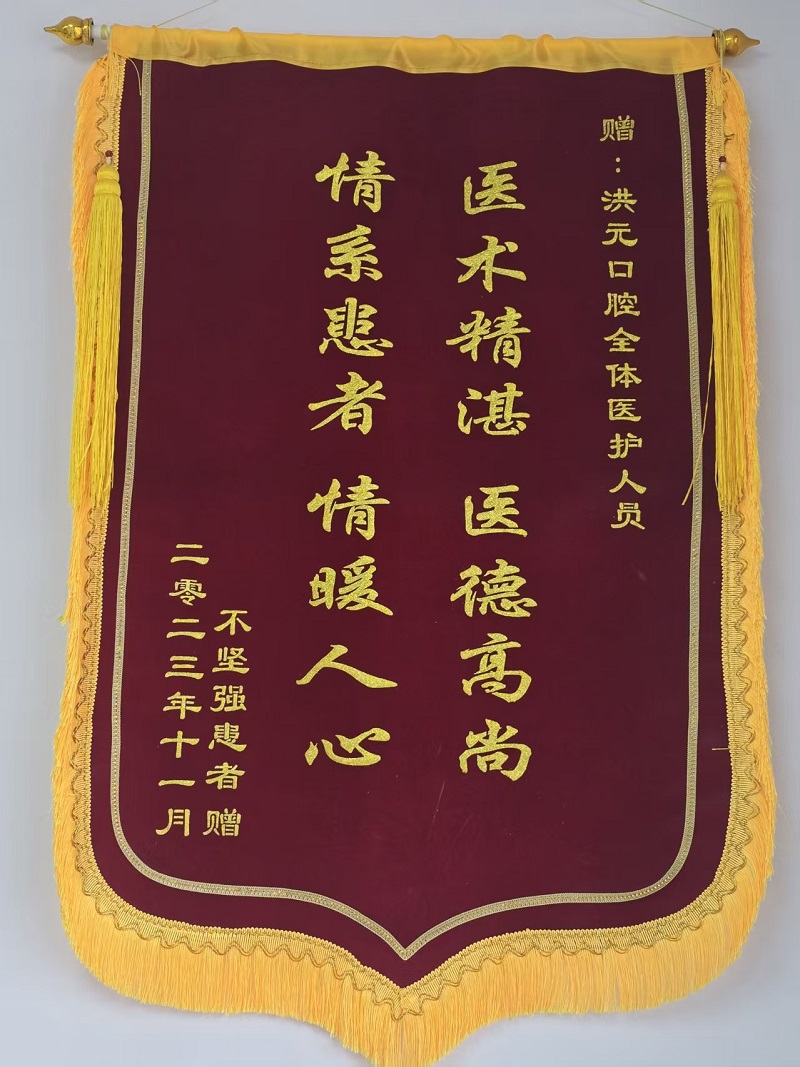 赠：洪元口腔全体医护人员
医术精湛 医德高尚
情系患者 情暖人心
不坚强患者 赠
二零二三年十一月